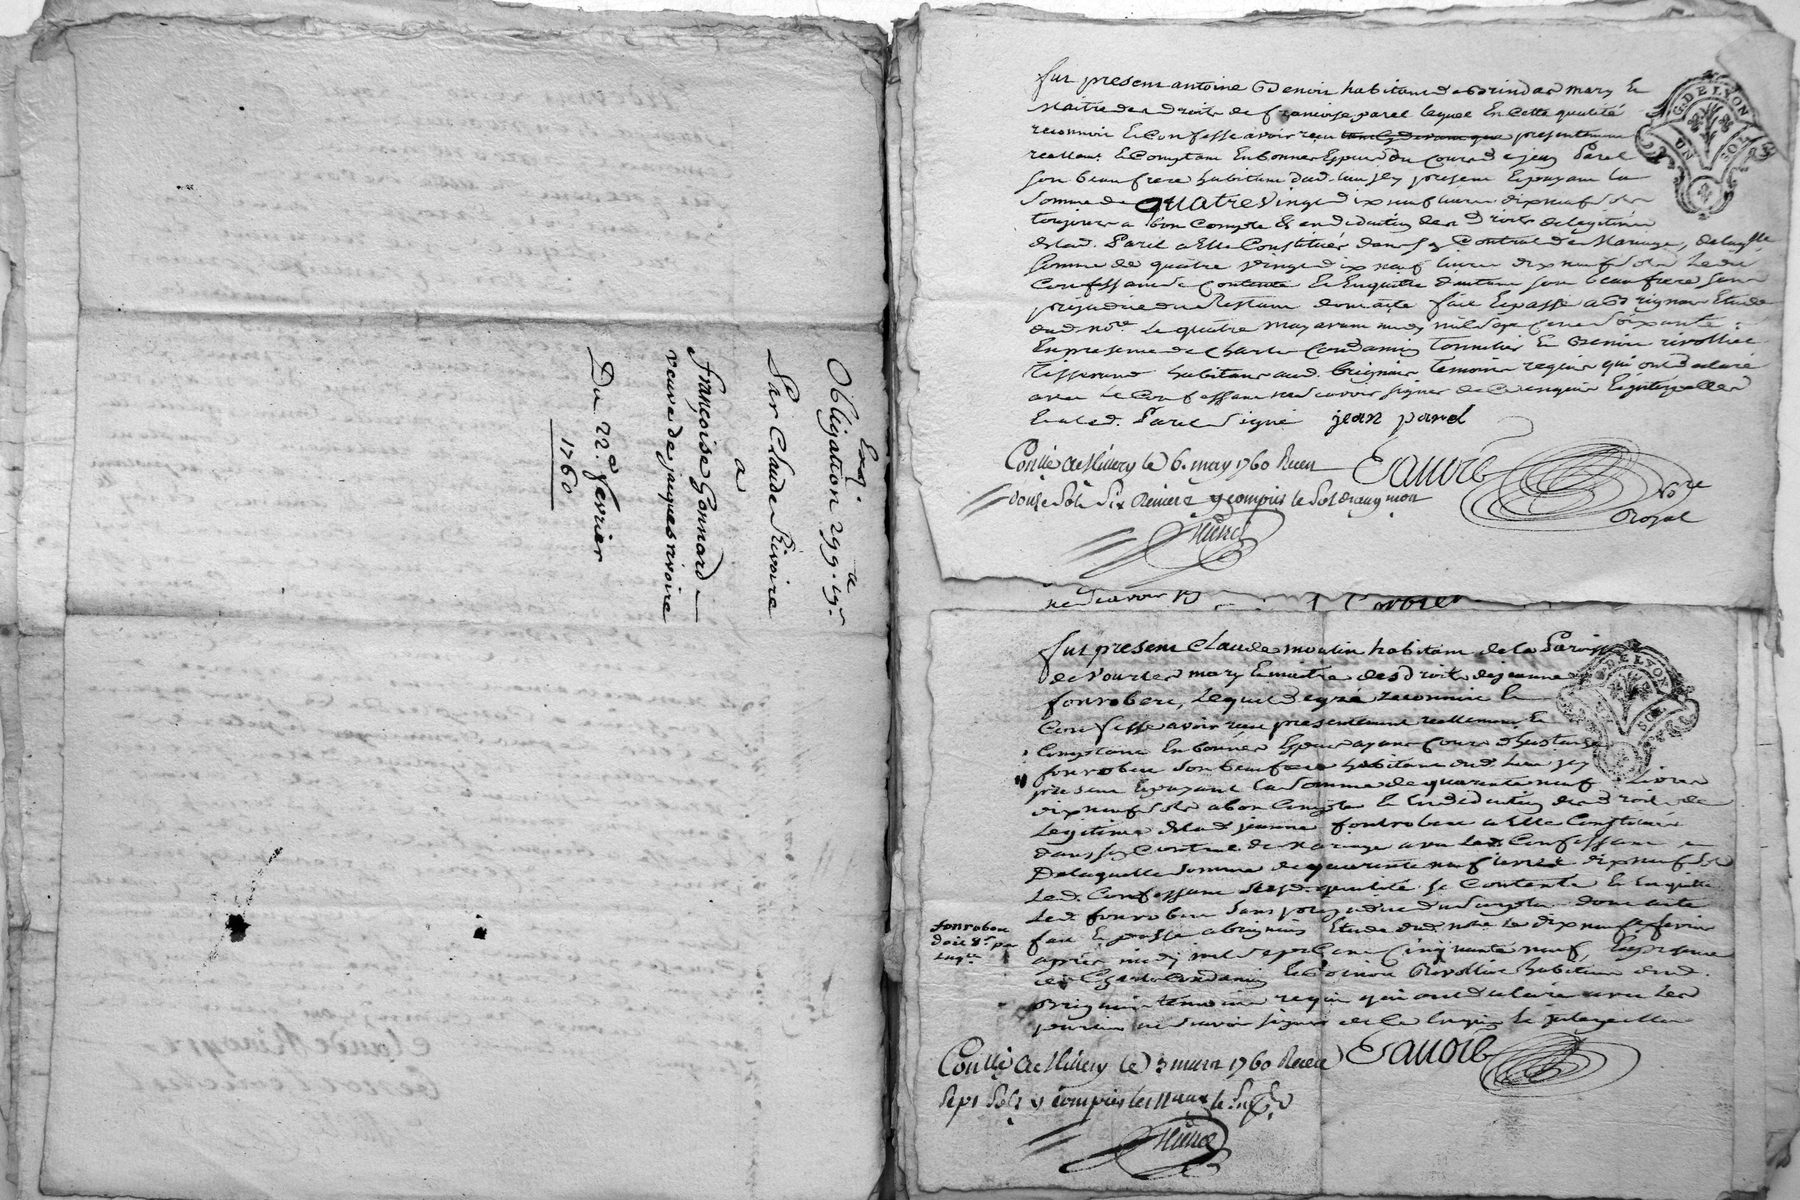 Exq.
Obligation 299.# 19.s
Par Claude Rivoire
a
françoise Gonnard
veuve de jacques rivoire
Du 22.e fevrier
1760
fut present antoine habitant a mary &
Maitre des droits de francoise parel lequel En cette qualité
reconnoit & Confesse avoir receu presentement
reellement & Comptant En bonnes Especes du Cours de jean Parel
son beau frere habitant dud. lieu jcy present & payant la
somme de quatre vingt dix neuf livres dix neuf sols
toujours a bon Compte & en deduction des droits de legitime
de lad. Parel a Elle Constitués dans son Contrat de Mariage, de laquelle
somme de quatre vingt dix neuf livres dix neuf sols Led.
Confessant se contente & En quitte d'autant son beau frere sans
prejudice du Restant dont acte fait & passé a Brignais Etude
dud. nore. Le quatre may avant midy mil sept cent soixante :
En presence de Charles Condamin Tonnelier & Benoit rivollier
Tisserand habitans aud. Brignais temoins requis qui ont declaré
avec le Confessant ne scavoir signer de Ce enquis & interpellés
& a led. Parel signé jean parel
Conllé a Millery le 6. may 1760 Receu
douze sols six deniers y compris le
Nore
Royal
ne scavoir
fut present Claude moulin habitant de la Paroisse
de Vourles mary & maitre des droits de jeanne
fonrobert, Lequel de gré reconnoit &
Confesse avoir receu presentement reellement &
Comptant En bonnes Especes ayant Cours
fonrobert son beau frere habitant dud. Lieu jcy
present & payant la somme de quarante neuf Livres
dix neuf sols a bon Compte & En deduction des droits de
Legitime de lad. jeanne fonrobert a Elle Constitués
dans son Contrat de Mariage avec Led. Confessant
De laquelle somme de quarante neuf livres dix neuf sols
Led. Confessant Esd. qualité se Contente & En quitte
Led. fonrobert sans prejudice du surplus dont acte
fonrobert
doit
fait & passé a brignais Etude dud. nore Le dix neuf fevrier
après midy mil sept Cent Cinquante neuf, En presence
de Charles Condamin & Benoit Rivollier habitans aud.
Brignais temoins requis qui ont declaré avec Les
parties ne scavoir signer de Ce Enquis & jnterpellés
Conllé a Millery le 3 mars 1760 Receu
Sept Sols y compris les